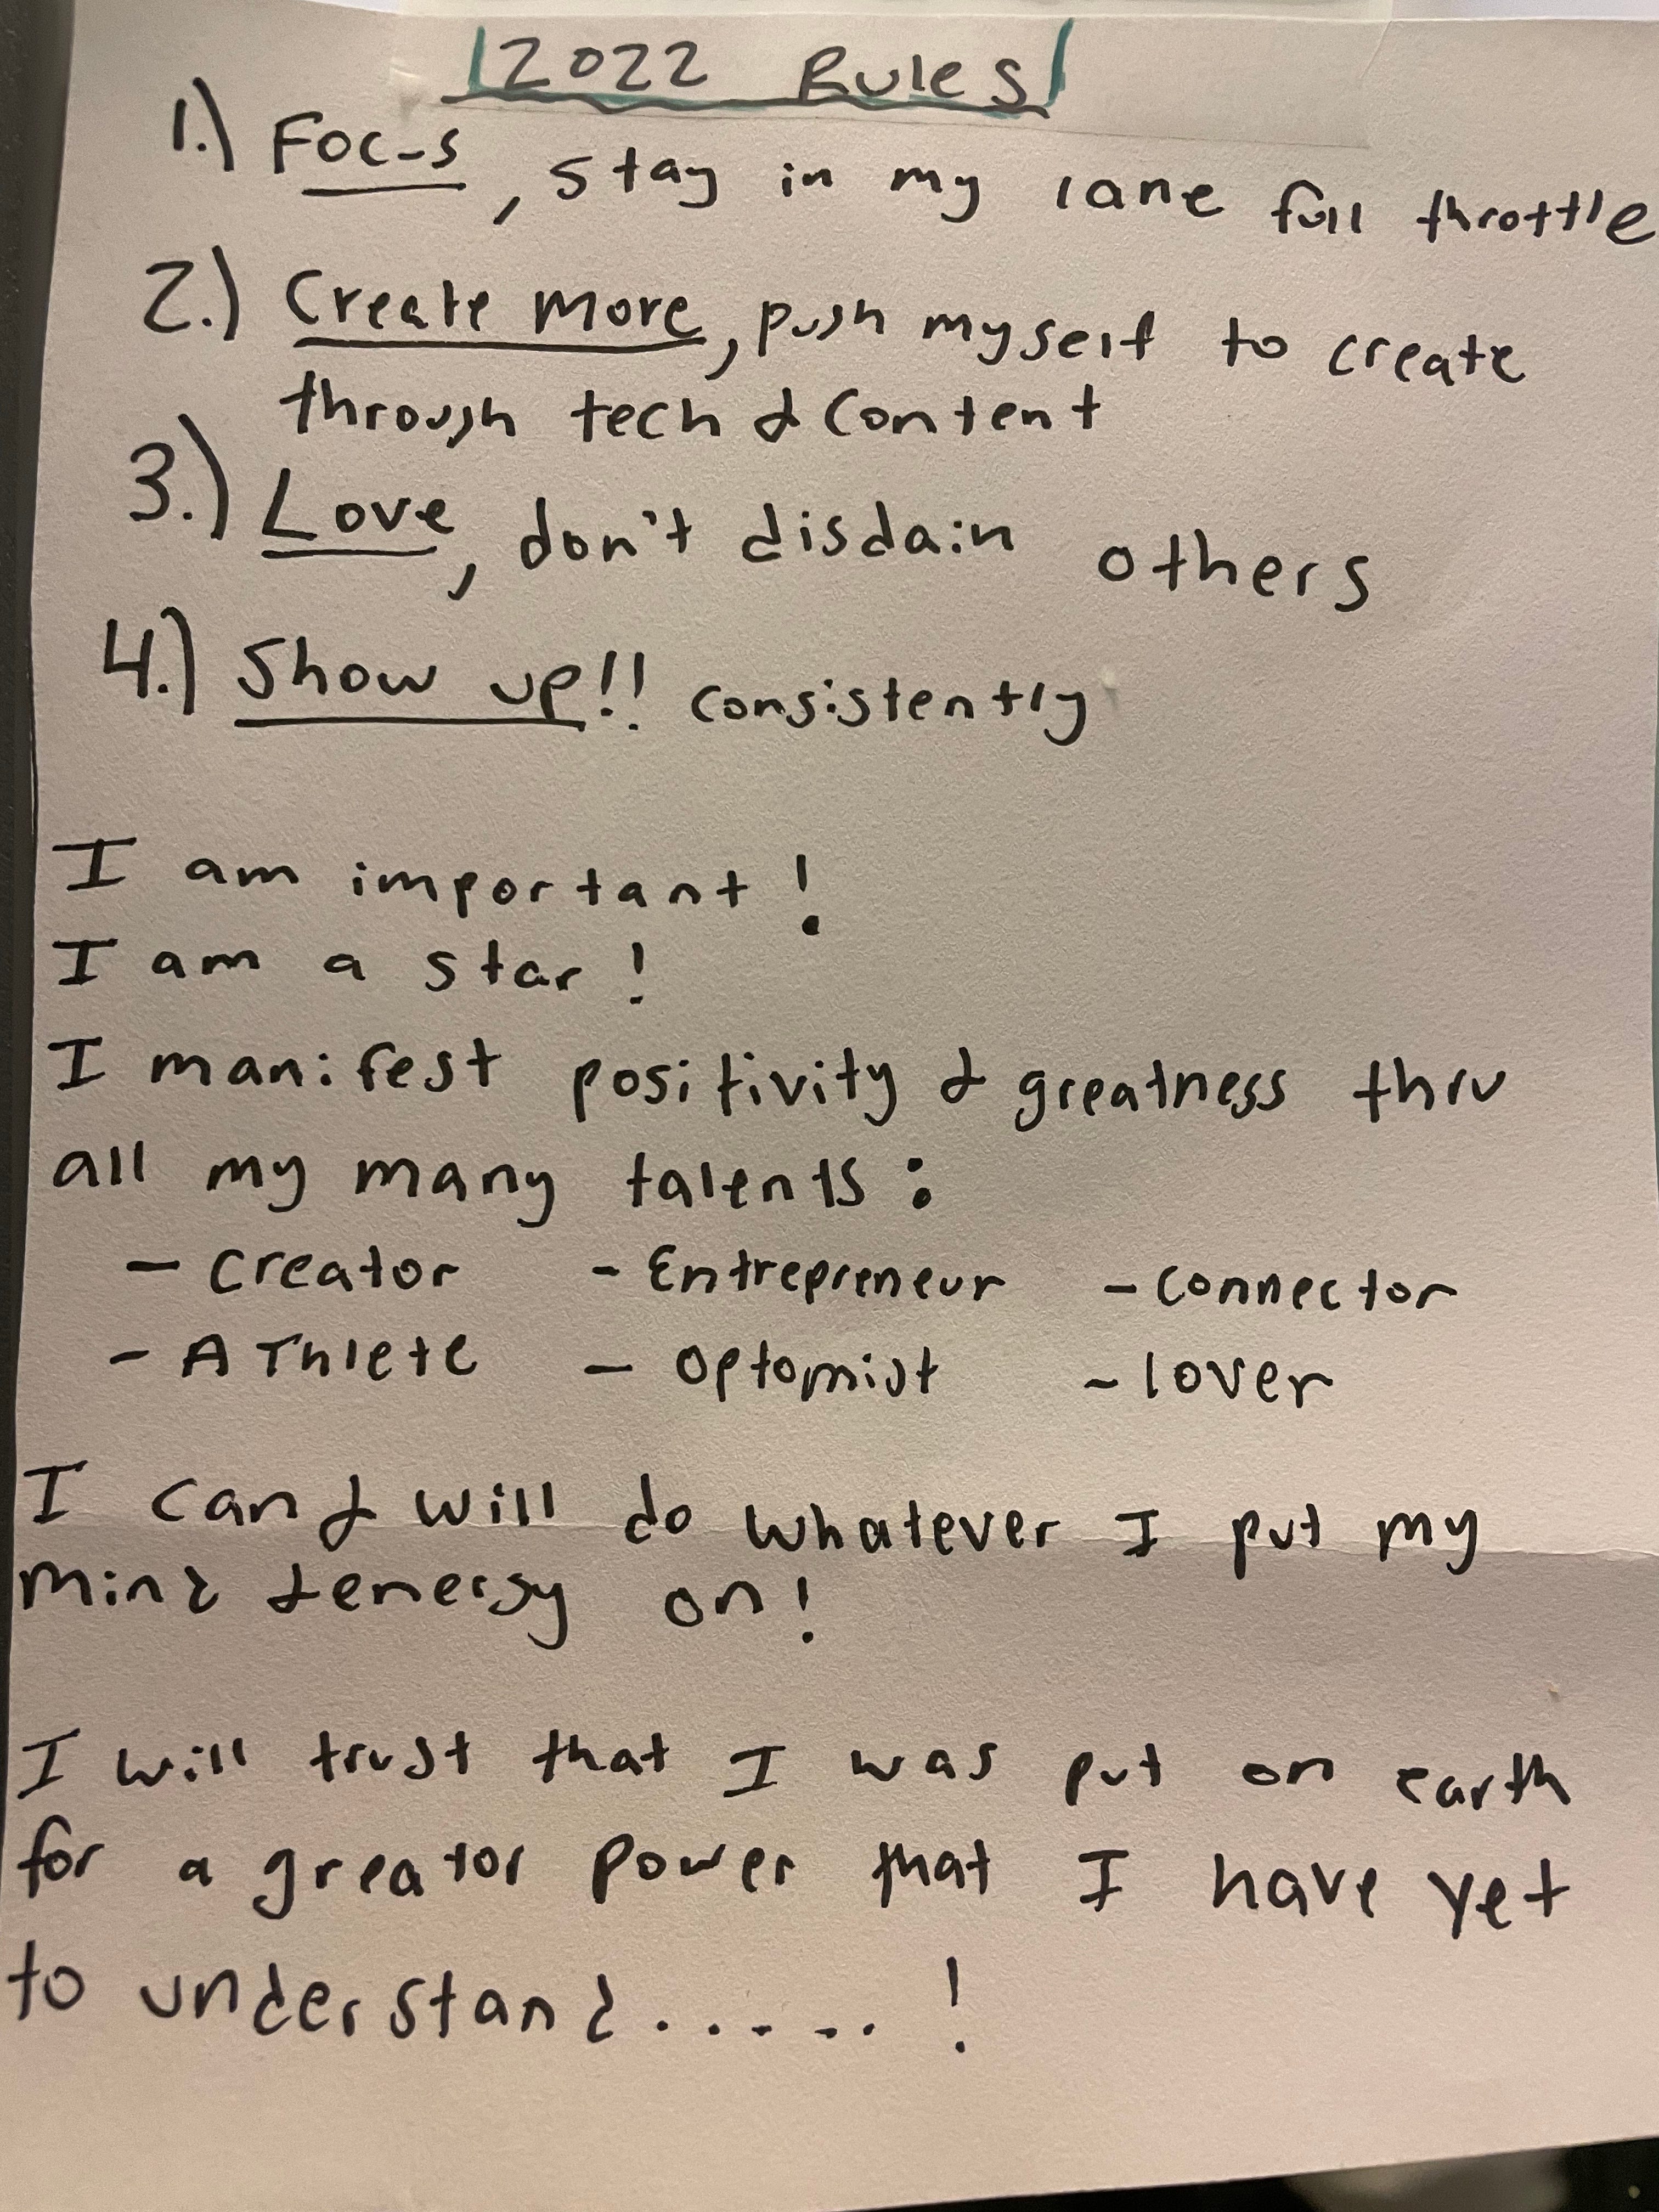 2022 Rules
1.) Focus, stay in my lane full throttle
2.) Create more, push myself to create
through tech & content
3.) Love, don't disdain others
4.) Show up!! consistently
I am important!
I am a star!
I manifest positivity & greatness thru
all my many talents:
- Creator - Entrepreneur - Connector
- AThlete - Optomist - lover
I can & will do whatever I put my
mind & energy on!
I will trust that I was put on earth
for a greator power that I have yet
to understand......!